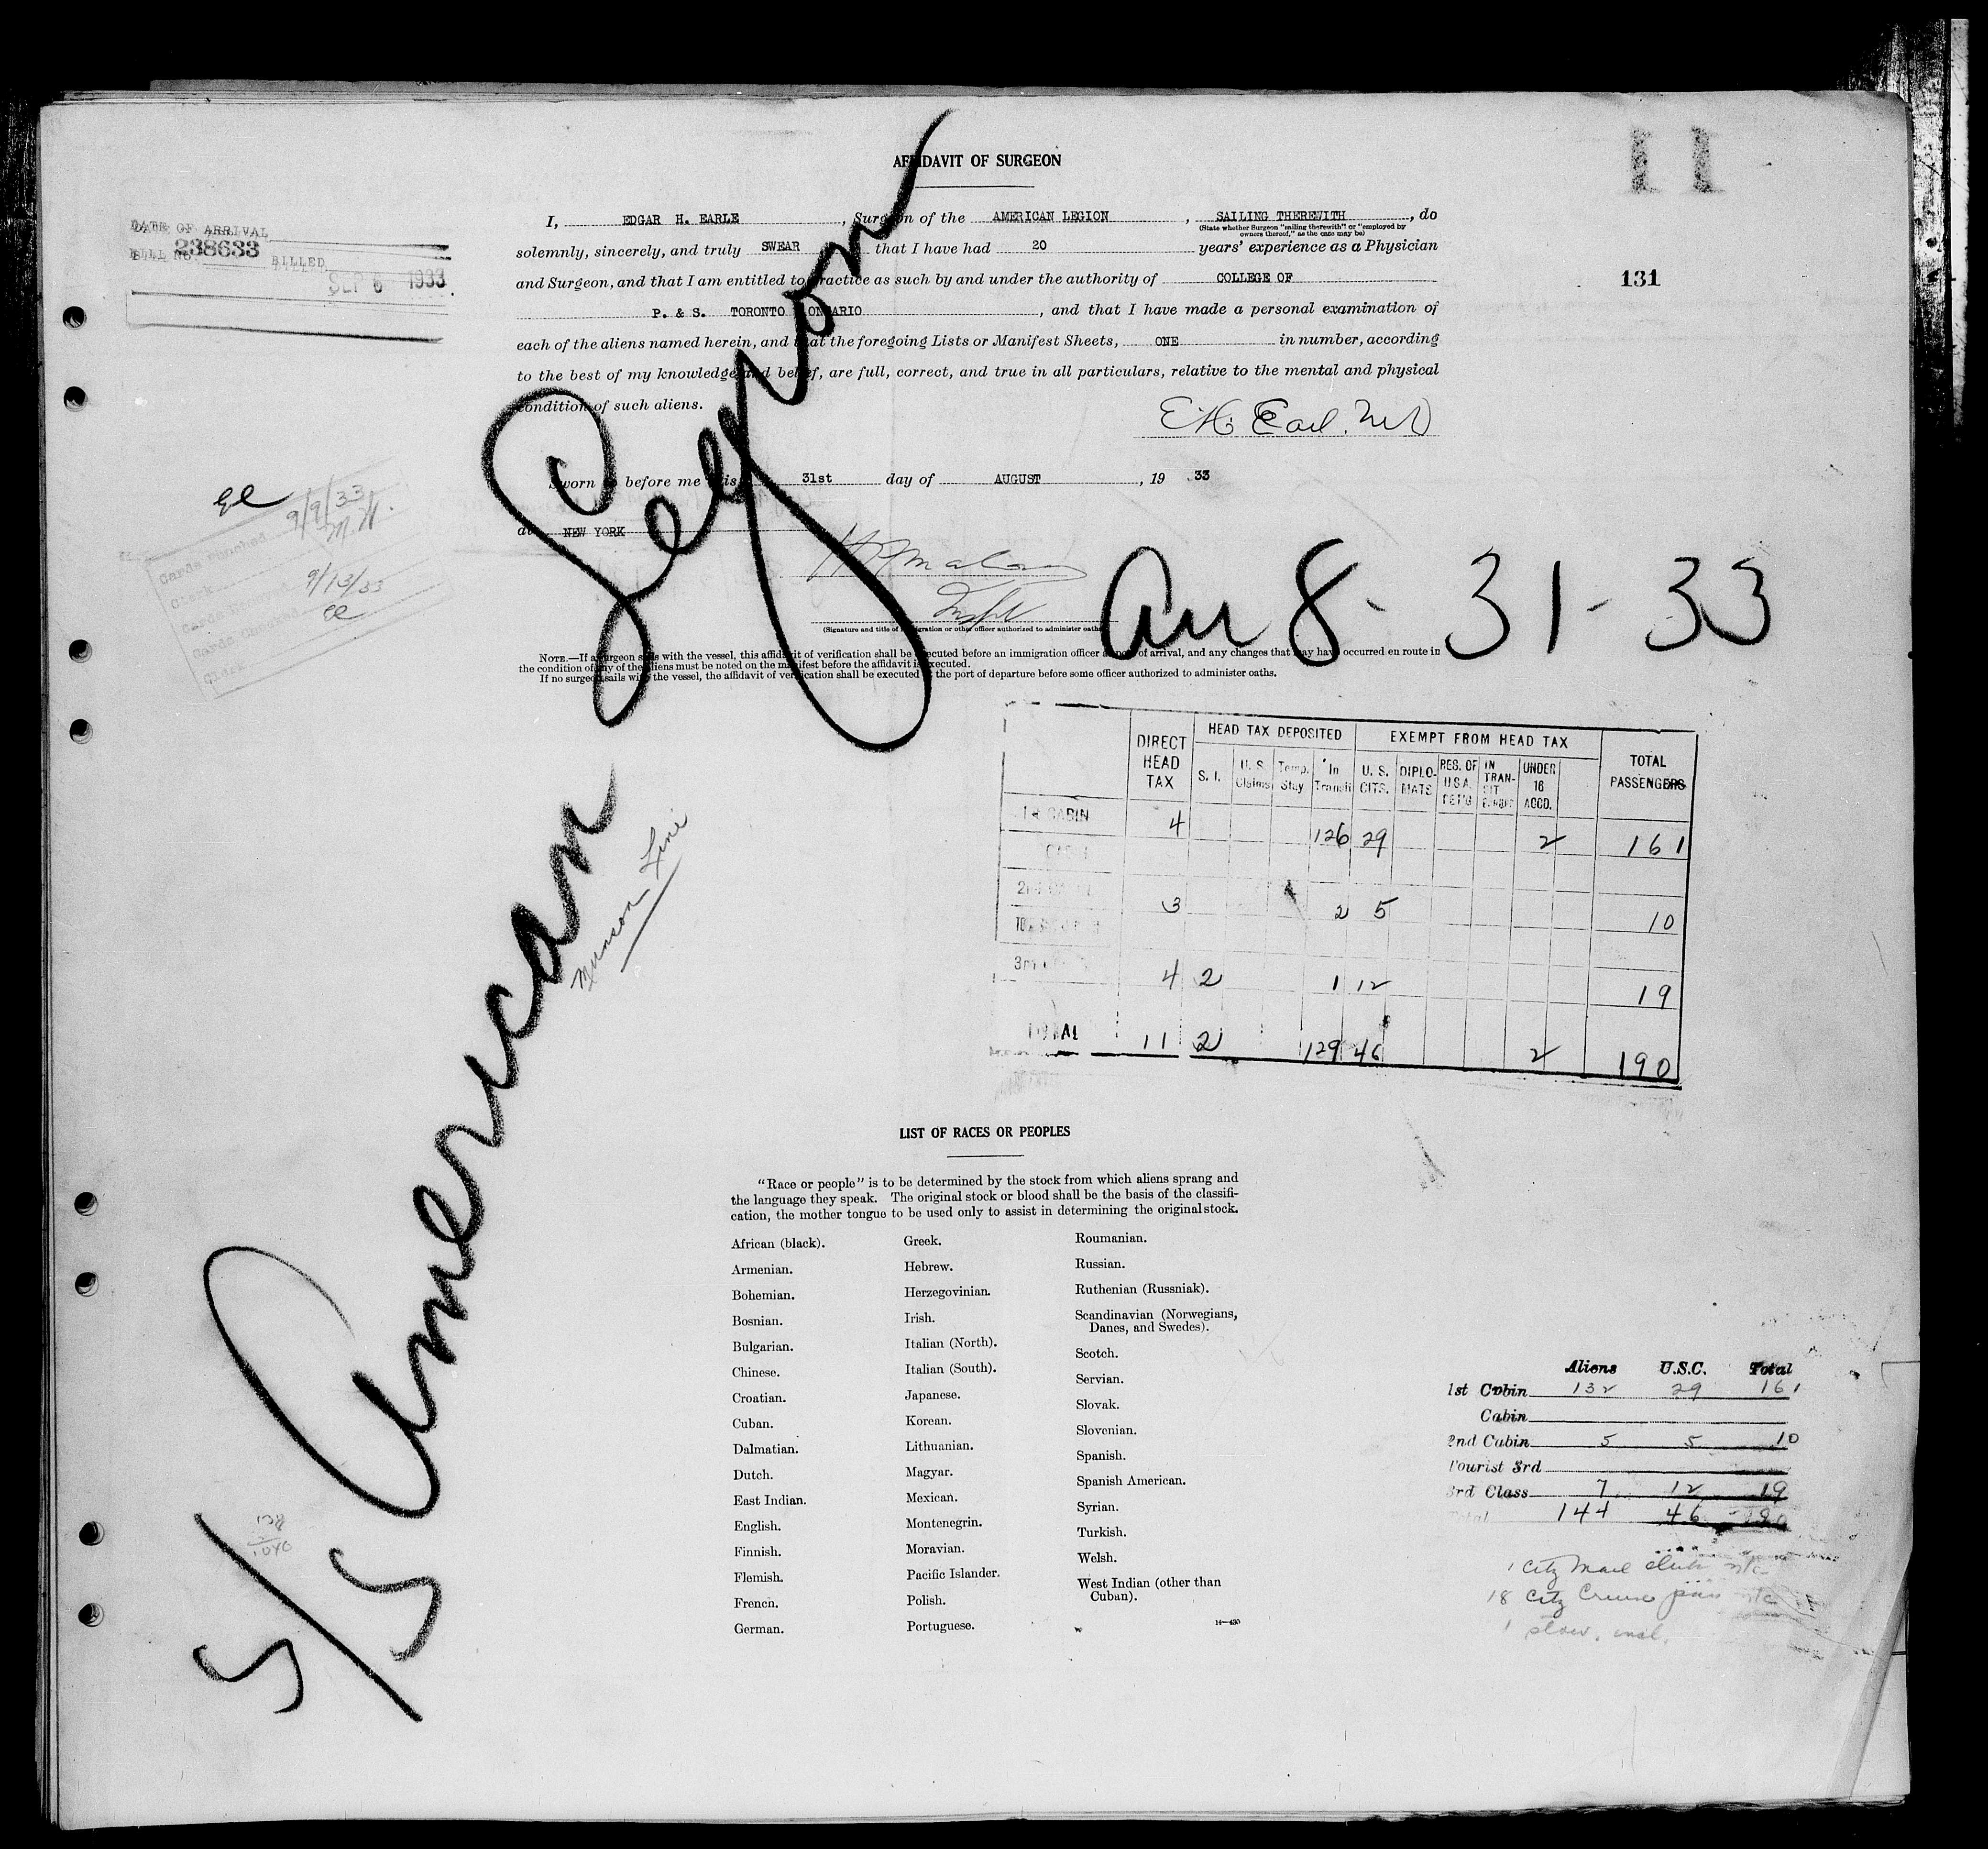 11
AFFIDAVIT OF SURGEON
I, EDGAR H. EARLE, Surgeon of the AMERICAN LEGION, SAILING THEREWITH, do
(State whether Surgeon "sailing therewith" or "employed by
owners thereof," as the case may be)
solemnly, sincerely, and truly SWEAR that I have had 20 years' experience as a Physician
and Surgeon, and that I am entitled to practice as such by and under the authority of COLLEGE OF
P. & S. TORONTO ONTARIO, and that I have made a personal examination of
each of the aliens named herein, and that the foregoing Lists or Manifest Sheets, ONE in number, according
to the best of my knowledge and belief, are full, correct, and true in all particulars, relative to the mental and physical
condition of such aliens.
E.H. Earl. M.D
Sworn to before me this 31st day of AUGUST, 19 33
at NEW YORK
Insp
(Signature and title of immigration or other officer authorized to administer oaths)
NOTE.—If a surgeon sails with the vessel, this affidavit of verification shall be executed before an immigration officer at port of arrival, and any changes that may have occurred en route in
the condition of any of the aliens must be noted on the manifest before the affidavit is executed.
If no surgeon sails with the vessel, the affidavit of verification shall be executed at the port of departure before some officer authorized to administer oaths.
DATE OF ARRIVAL
BILL NO. 238633 BILLED
SEP 6 1933
131
ee
Cards Punched 9/9/33
M.H.
Clerk
9/13/33
ee
Clerk
S/S American Legion
Munson Line
Arr 8-31-33
DIRECT HEAD TAX HEAD TAX DEPOSITED EXEMPT FROM HEAD TAX TOTAL PASSENGERS
S. I. U. S. Claims Temp. Stay In Transit U. S. CITS. DIPLOMATS RES. OF U.S.A. RET'G IN TRANSIT UNDER 16 ACCD.
1st CABIN 4 126 29 2 161
CABIN
2nd CABIN 3 2 5 10
3rd 4 2 1 12 19
TOTAL 11 2 129 46 2 190
LIST OF RACES OR PEOPLES
"Race or people" is to be determined by the stock from which aliens sprang and
the language they speak. The original stock or blood shall be the basis of the classifi-
cation, the mother tongue to be used only to assist in determining the original stock.
African (black).
Armenian.
Bohemian.
Bosnian.
Bulgarian.
Chinese.
Croatian.
Cuban.
Dalmatian.
Dutch.
East Indian.
English.
Finnish.
Flemish.
French.
German.
Greek.
Hebrew.
Herzegovinian.
Irish.
Italian (North).
Italian (South).
Japanese.
Korean.
Lithuanian.
Magyar.
Mexican.
Montenegrin.
Moravian.
Pacific Islander.
Polish.
Portuguese.
Roumanian.
Russian.
Ruthenian (Russniak).
Scandinavian (Norwegians,
Danes, and Swedes).
Scotch.
Servian.
Slovak.
Slovenian.
Spanish.
Spanish American.
Syrian.
Turkish.
Welsh.
West Indian (other than
Cuban).
14—430
Aliens U.S.C. Total
1st Cabin 132 29 161
Cabin
2nd Cabin 5 5 10
Tourist 3rd
3rd Class 7 12 19
Total 144 46 190
1 City Mail clerk n/c
18 City Cruise pass n/c
1 stow. incl.